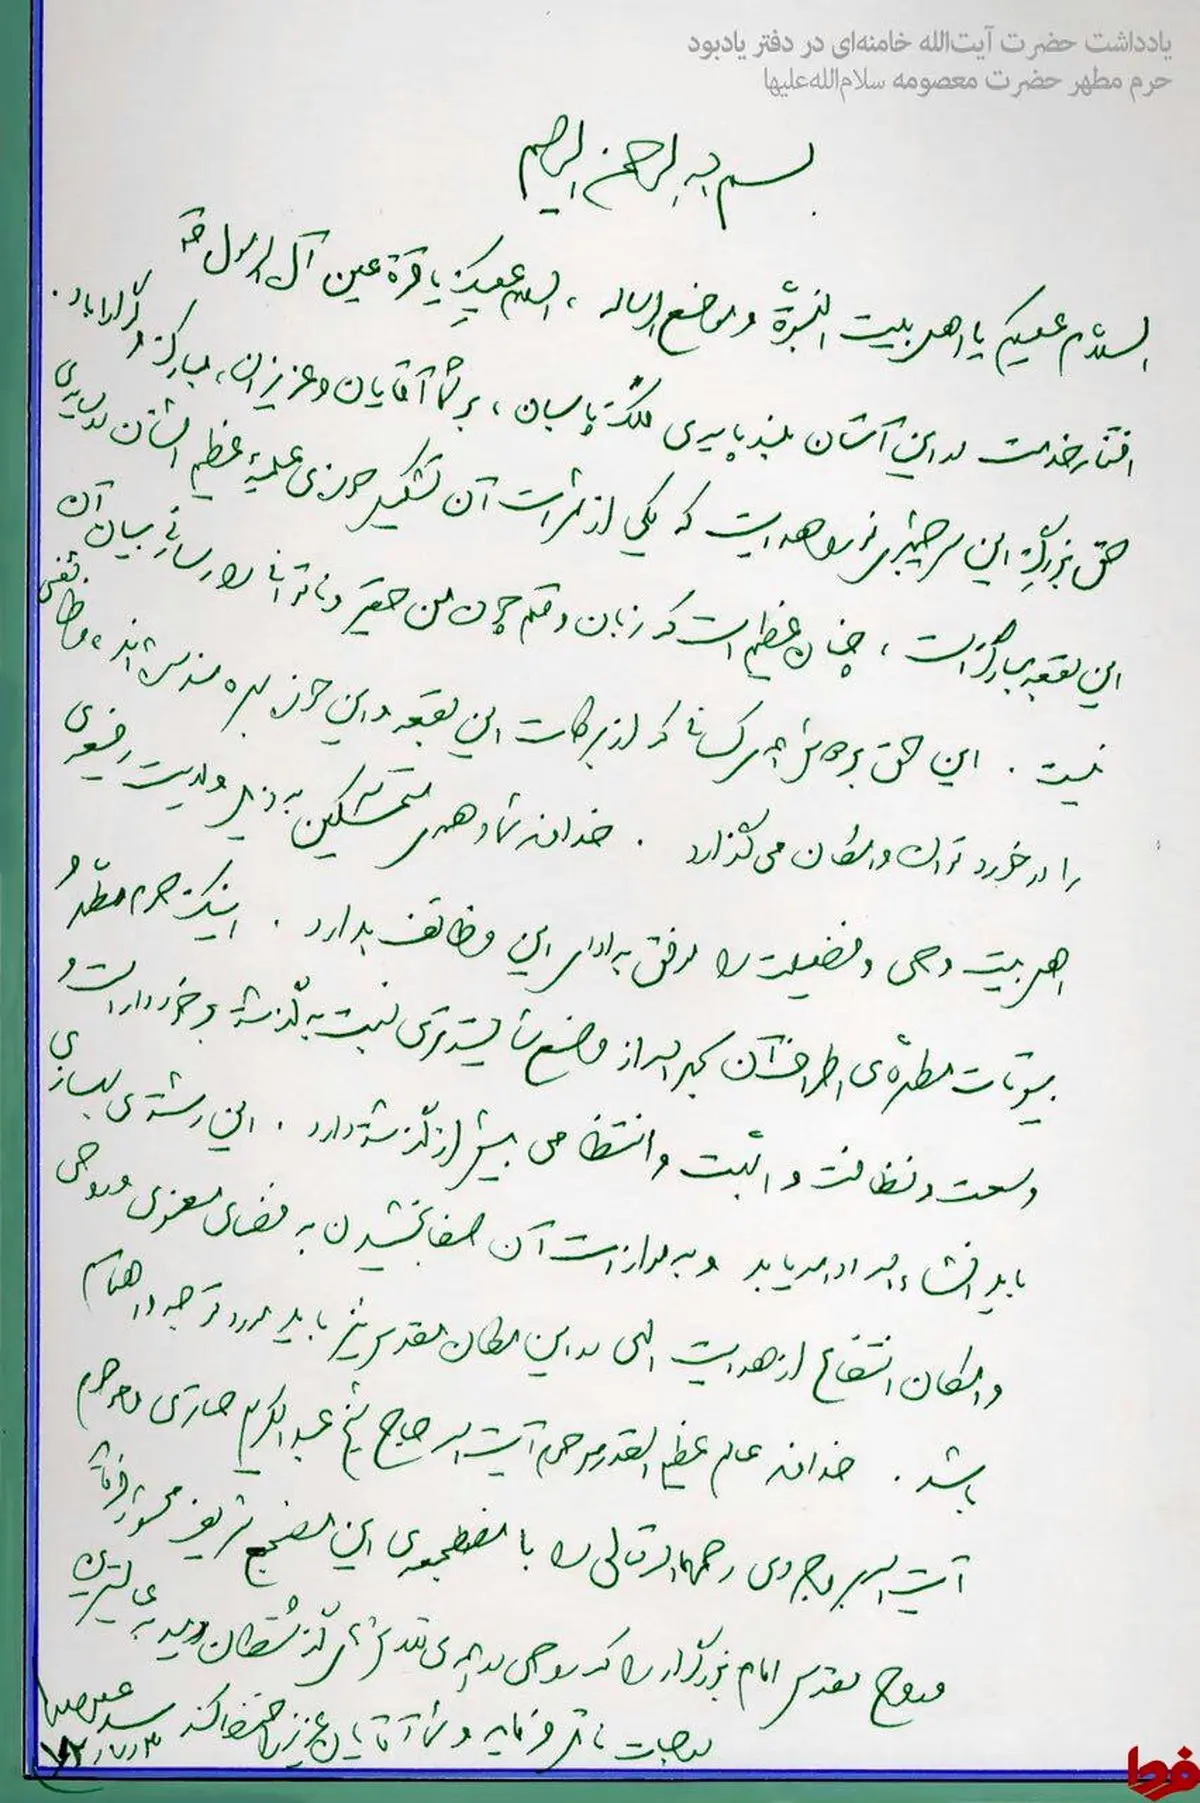 یادداشت حضرت آیت‌الله خامنه‌ای در دفتر یادبود
حرم مطهر حضرت معصومه سلام‌الله‌علیها
بسم الله الرحمن الرحیم
السلام علیکم یا اهل بیت النبوّة و موضع الرساله ، السلام علیکِ یا قرة عین آل الرسول
افتخار خدمت در این آستان بلند پایه‌ی ملک پاسبان ، بر شما آقایان و عزیزان ، مبارک و گوارا باد .
حق بزرگ این سرچشمه‌ی نور و هدایت که یکی از ثمرات آن تشکیل حوزه‌ی علمیهٔ عظیم الشأن در سایه‌ی
این بقعه‌ی مبارکه است ، چنان عظیم است که زبان و قلم چون من حقیر و ناتوانی را رسای بیان آن
نیست . این حق بر دوش همه‌ی کسانی که از برکات این بقعه و این حوزه بهره‌مند شده‌اند ، وظائفی
را در خورد توان و امکان می‌گذارد . خداوند شما و همه‌ی متمسّکین به ذیل ولایت رفیعه‌ی
اهل بیت وحی و فضیلت را موفق به ادای این وظائف بدارد . اینک حرم مطهّر و
بیوتات مطهره‌ی اطراف آن بحمدالله از وضع شایسته‌تری نسبت به گذشته برخوردار است و
وسعت و نظافت و ابهت و انتظامی بیش از گذشته دارد . این رشته‌ی بهسازی
باید انشاءالله ادامه یابد و به موازات آن صفا بخشیدن به فضای معنوی و روحی
و امکان انتفاع از هدایت الهی در این مکان مقدس نیز باید مورد توجه و اهتمام
باشد . خداوند عالم عظیم القدر مرحوم آیت الله حاج شیخ عبدالکریم حائری و مرحوم
آیت الله بروجردی رحمهما الله تعالی را با مضجعه‌ی این مضجع شریف محشور فرماید
و روح مقدس امام بزرگوار را که روحی در همه‌ی گذشتگان دمید به عالیترین
درجات نائل فرماید و شما آقایان عزیز را حفظ کند
سید علی خامنه‌ای